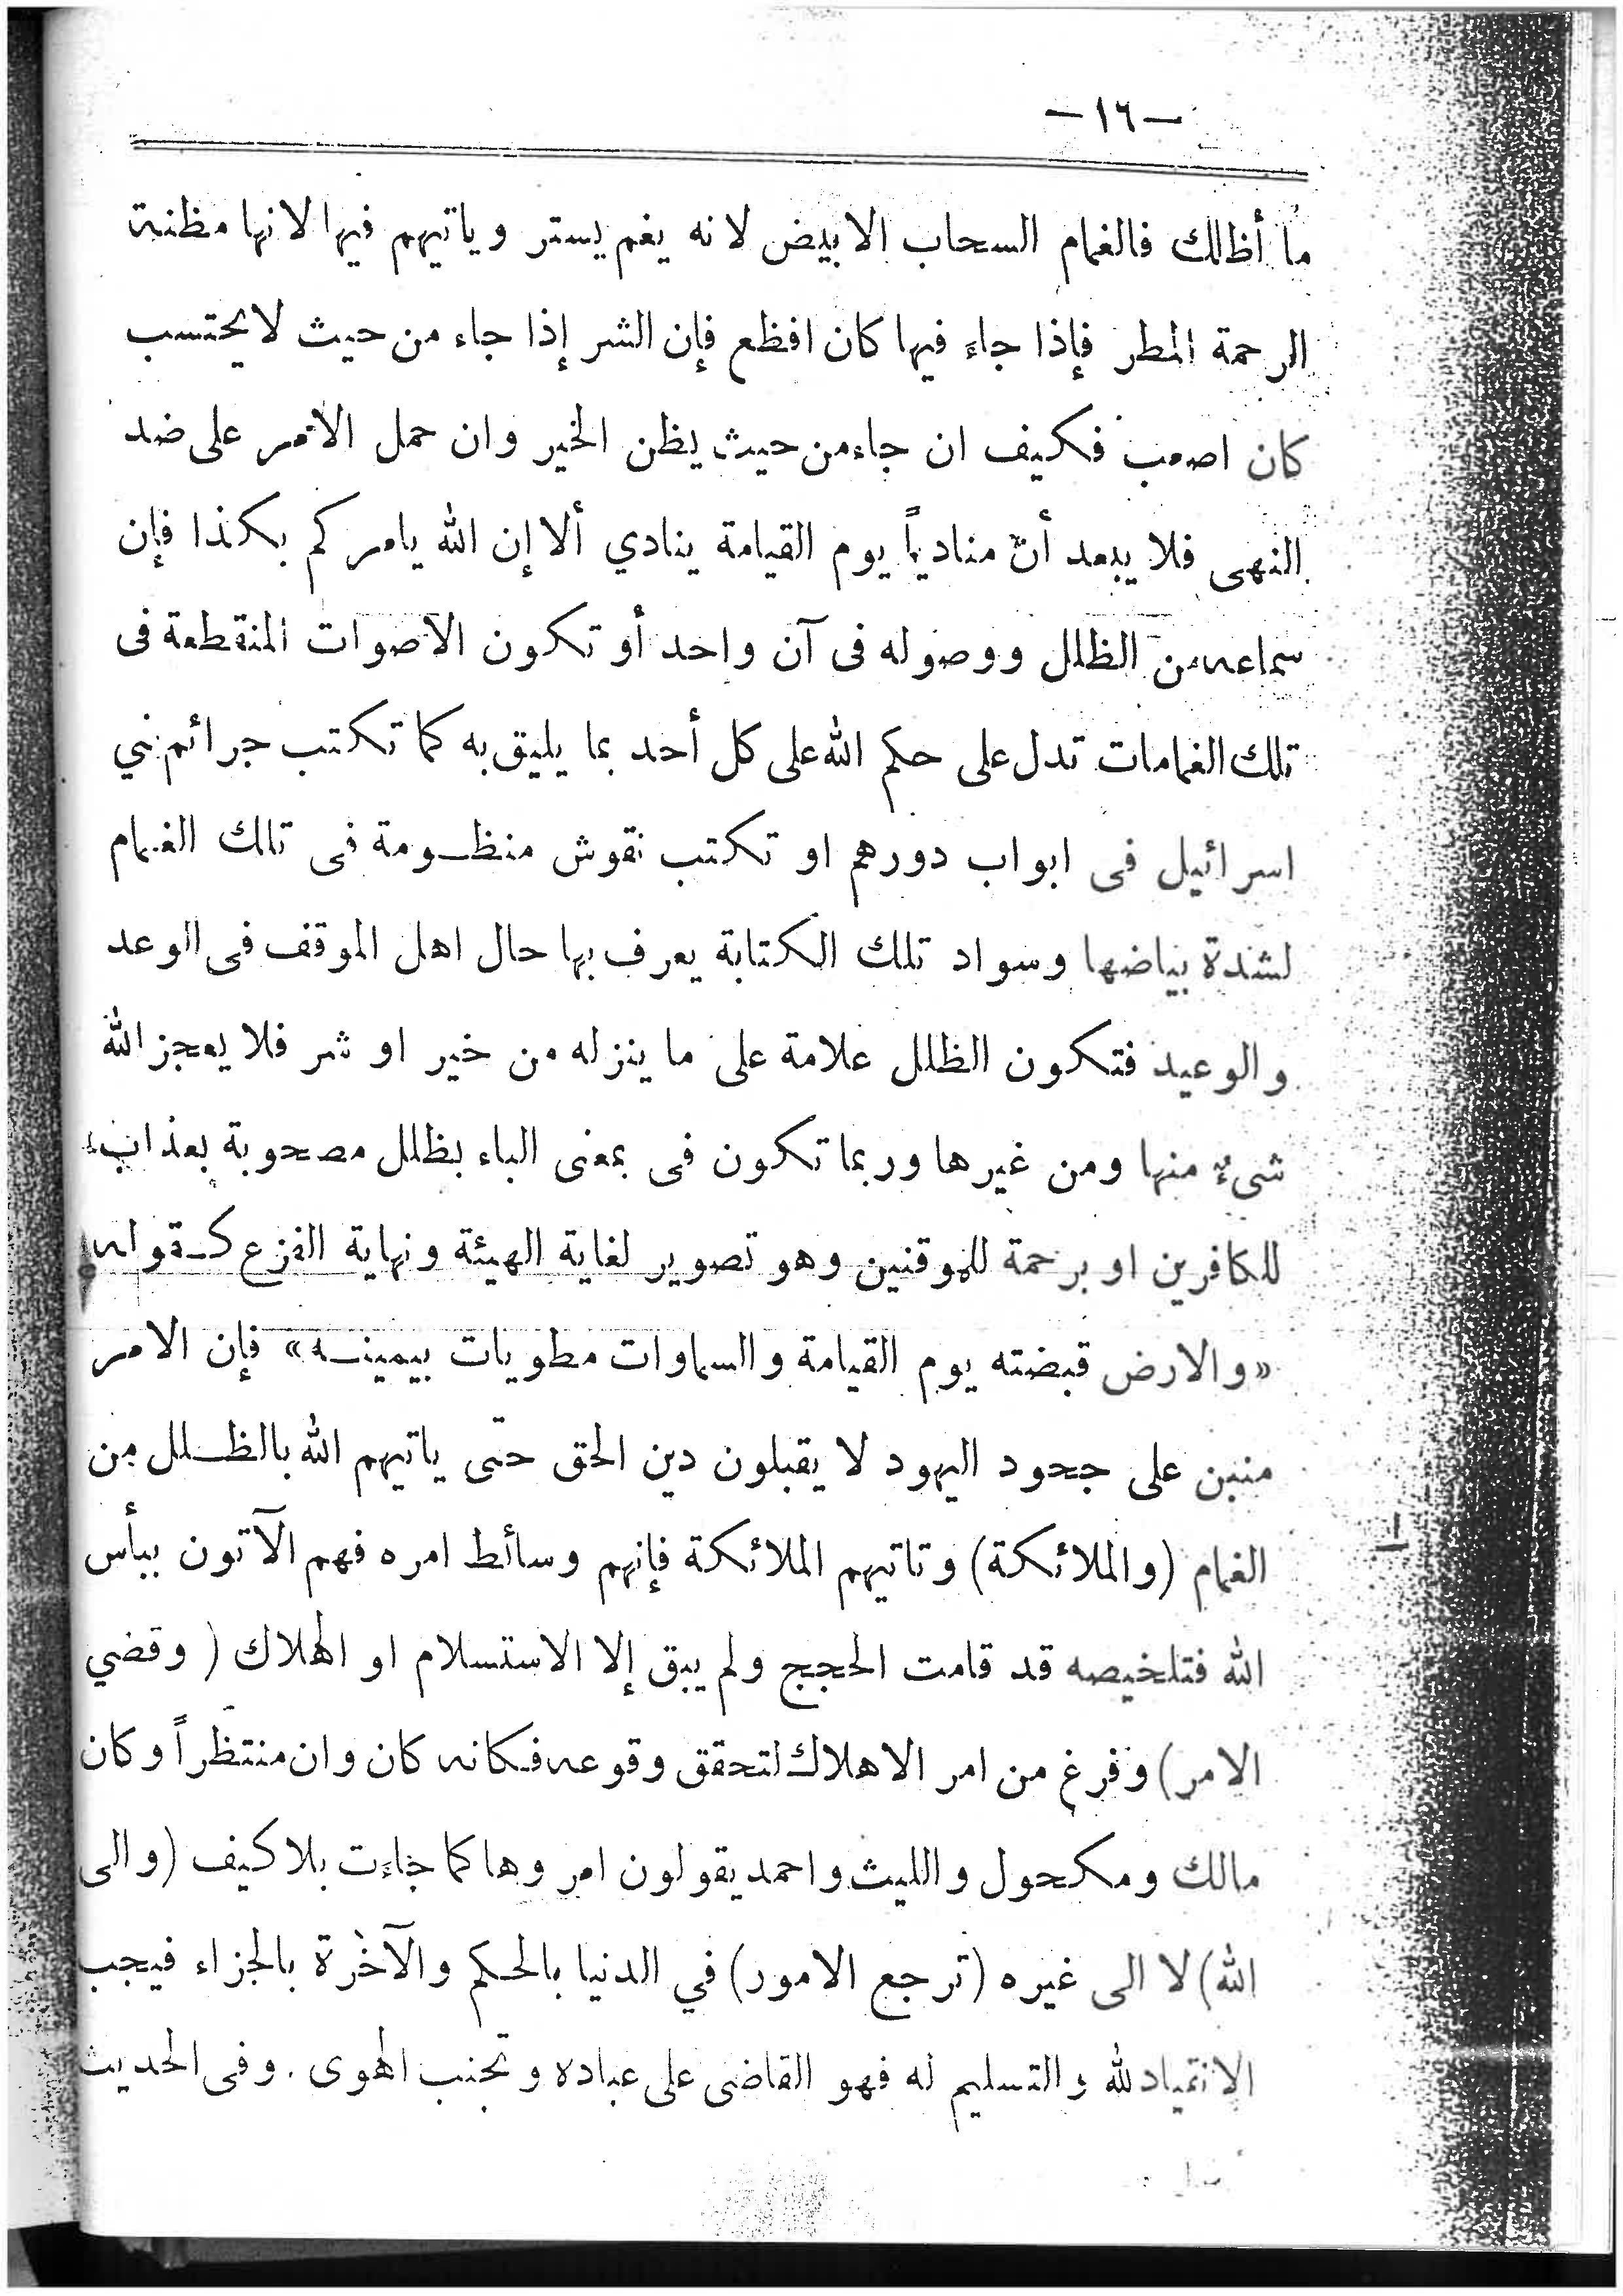 —١٦—
ما أظلك فالغمام السحاب الابيض لانه يغم يستر وياتيهم فيها لانها مظنة
الرحمة المطر فإذا جاء فيها كان افظع فإن الشر إذا جاء من حيث لايحتسب
كان اصعب فكيف ان جاء من حيث يظن الخير وان حمل الامر على ضد
النهى فلا يبعد أنّ منادياً يوم القيامة ينادي ألا إن الله يامركم بكذا فإن
سماعه من الظلل ووصوله فى آن واحد أو تكون الاصوات المنقطعة فى
تلك الغمامات تدل على حكم الله على كل أحد بما يليق به كما تكتب جرائم بني
اسرائيل فى ابواب دورهم او تكتب نقوش منظومة فى تلك الغمام
لشدة بياضها وسواد تلك الكتابة يعرف بها حال اهل الموقف فى الوعد
والوعيد فتكون الظلل علامة على ما ينزله من خير او شر فلا يعجز الله
شىءٌ منها ومن غيرها وربما تكون فى بمعنى الباء بظلل مصحوبة بعذاب
للكافرين او برحمة للموقنين وهو تصوير لغاية الهيئة ونهاية الفزع كقوله
«والارض قبضته يوم القيامة والسماوات مطويات بيمينه» فإن الامر
منبن على جحود اليهود لا يقبلون دين الحق حتى ياتيهم الله بالظلل من
الغمام (والملائكة) وتاتيهم الملائكة فإنهم وسائط امره فهم الآتون ببأس
الله فتلخيصه قد قامت الحجج ولم يبق إلا الاستسلام او الهلاك (وقضي
الامر) وفرغ من امر الاهلاك لتحقق وقوعه فكانه كان وان منتظراً وكان
مالك ومكحول والليث واحمد يقولون امروها كما جاءت بلا كيف (والى
الله) لا الى غيره (ترجع الامور) في الدنيا بالحكم والآخرة بالجزاء فيجب
الانقياد لله والتسليم له فهو القاضى على عباده وتجنب الهوى. وفى الحديث